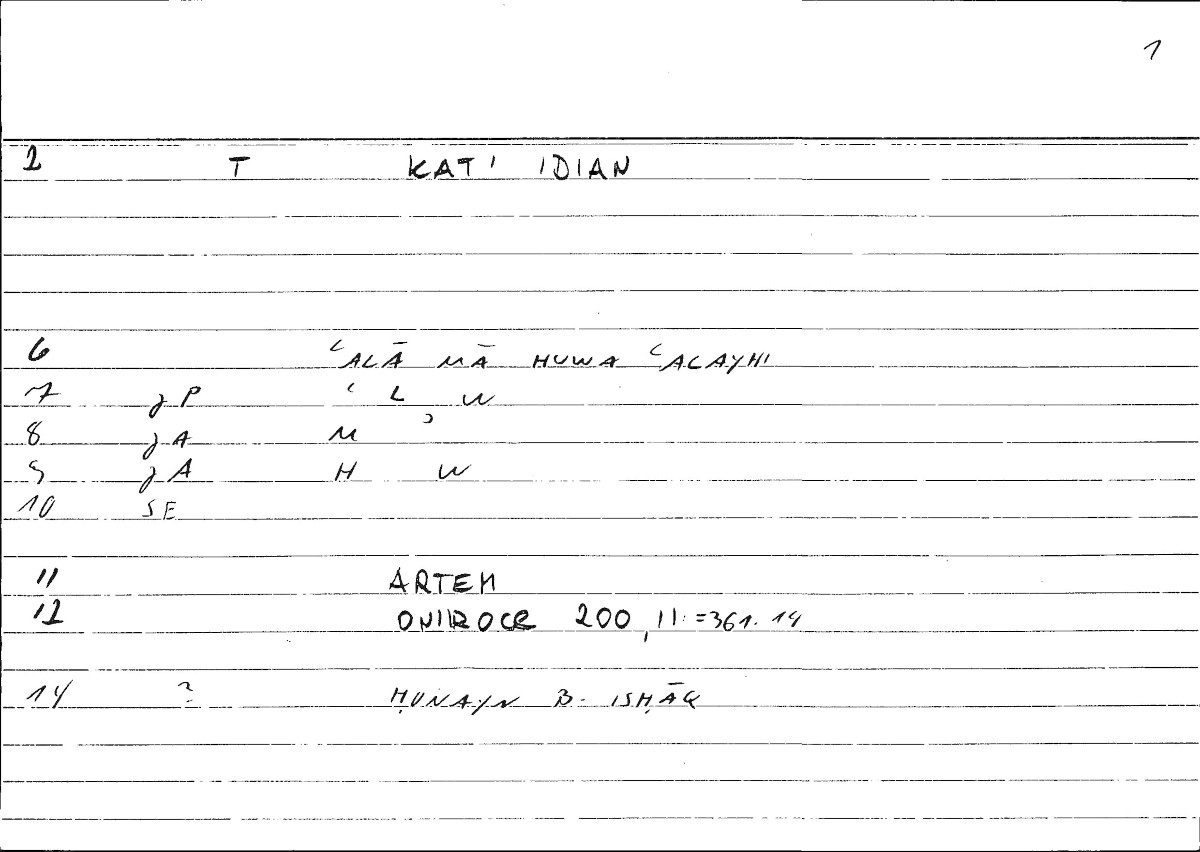 1
2 T KAT' IDIAN
6 ʿALĀ MĀ HUWA ʿALAYHI
7 gP ʿ L W
8 gA M ʾ
9 gA H W
10 SE
11 ARTEM
12 ONIROCR 200, 11 = 361. 14
14 ? ḤUNAYN B. ISḤĀQ